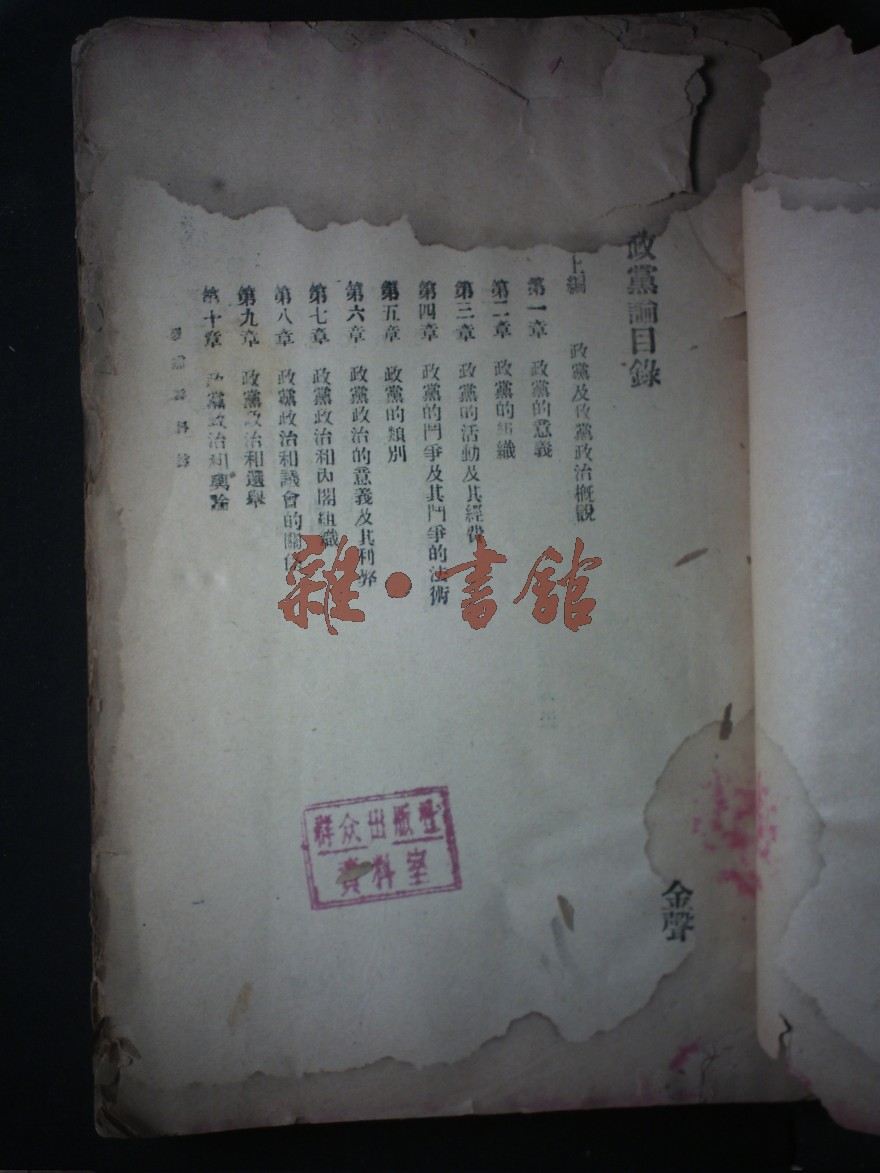 政黨論目錄
金聲
上編 政黨及政黨政治概觀
第一章 政黨的意義
第二章 政黨的組織
第三章 政黨的活動及其經費
第四章 政黨的鬥爭及其鬥爭的法術
第五章 政黨的類別
第六章 政黨政治的意義及其利弊
第七章 政黨政治和內閣組織
第八章 政黨政治和議會的關係
第九章 政黨政治和選舉
第十章 政黨政治和輿論
雜·書館
群众出版社
資料室